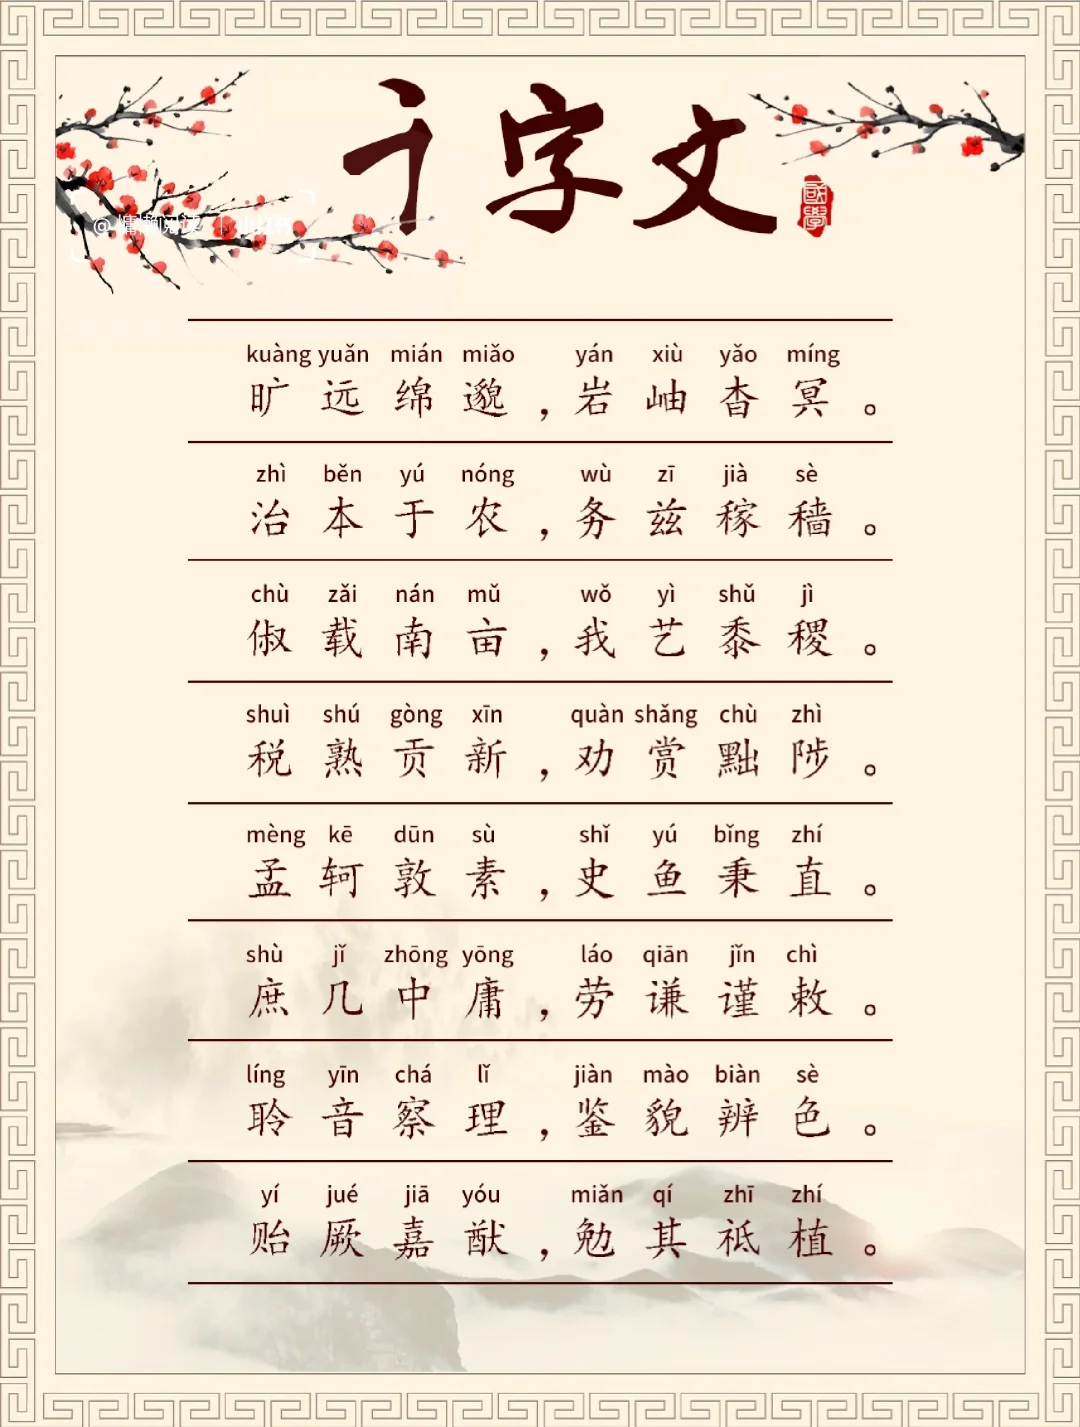 千字文
國學
kuàng yuǎn mián miǎo yán xiù yǎo míng
旷远绵邈，岩岫杳冥。
zhì běn yú nóng wù zī jià sè
治本于农，务兹稼穑。
chù zǎi nán mǔ wǒ yì shǔ jì
俶载南亩，我艺黍稷。
shuì shú gòng xīn quàn shǎng chù zhì
税熟贡新，劝赏黜陟。
mèng kē dūn sù shǐ yú bǐng zhí
孟轲敦素，史鱼秉直。
shù jǐ zhōng yōng láo qiān jǐn chì
庶几中庸，劳谦谨敕。
líng yīn chá lǐ jiàn mào biàn sè
聆音察理，鉴貌辨色。
yí jué jiā yóu miǎn qí zhī zhí
贻厥嘉猷，勉其祗植。